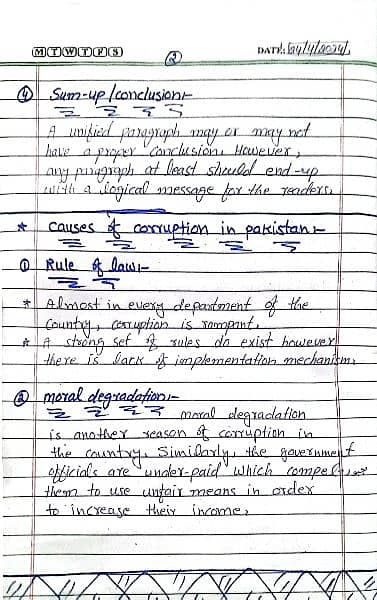 M T W T F S
②
DATE: 04/4/2024
④ Sum-up/conclusion:-
A unified paragraph may or may not
have a proper conclusion. However,
any paragraph at least should end-up
with a logical message for the readers.
* causes of corruption in pakistan:-
① Rule of law:-
* Almost in every department of the
Country, corruption is rampant.
* A strong set of rules do exist however
there is lack of implementation mechanism.
② moral degradation:-
moral degradation
is another reason of corruption in
the country. Similarly, the government
officials are under-paid which compel
them to use unfair means in order
to increase their income.